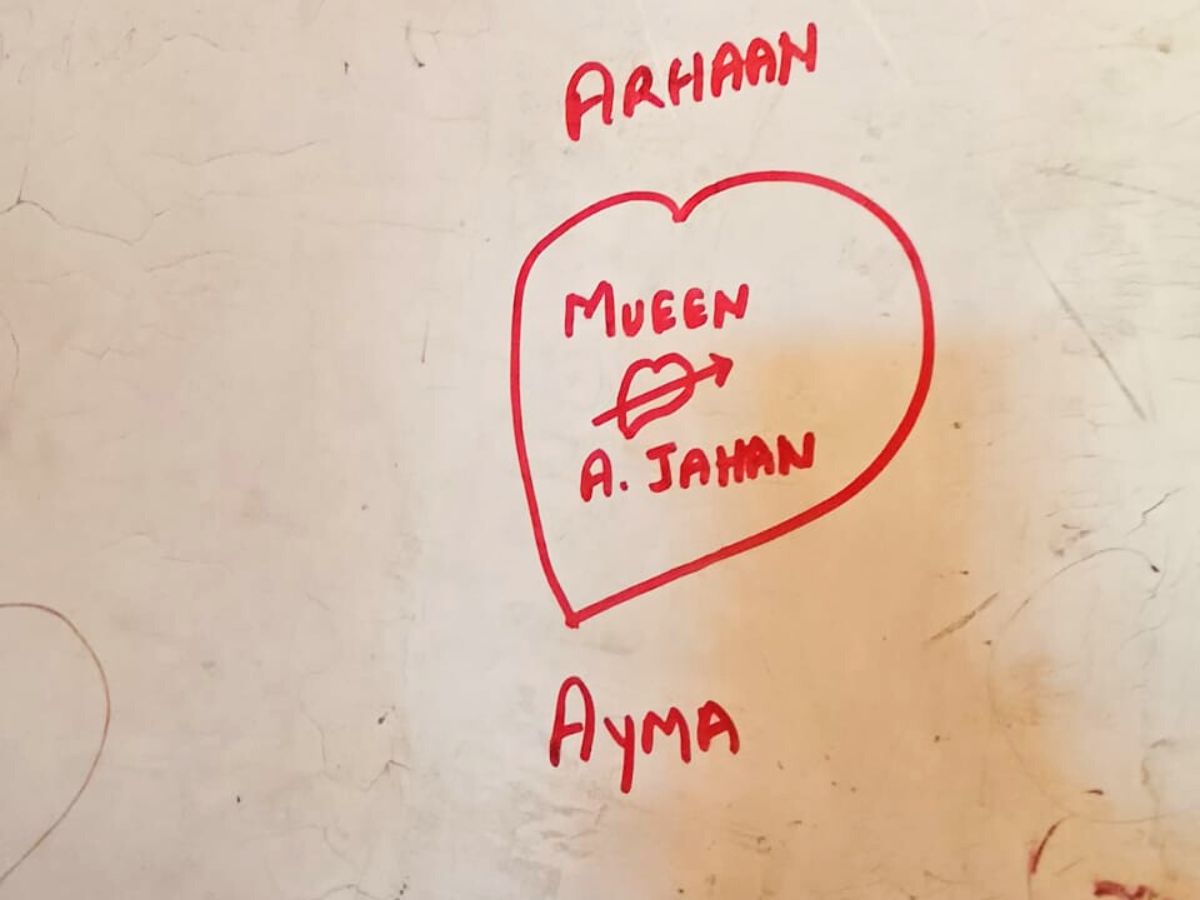 ARHAAN
MUEEN
A. JAHAN
AYMA